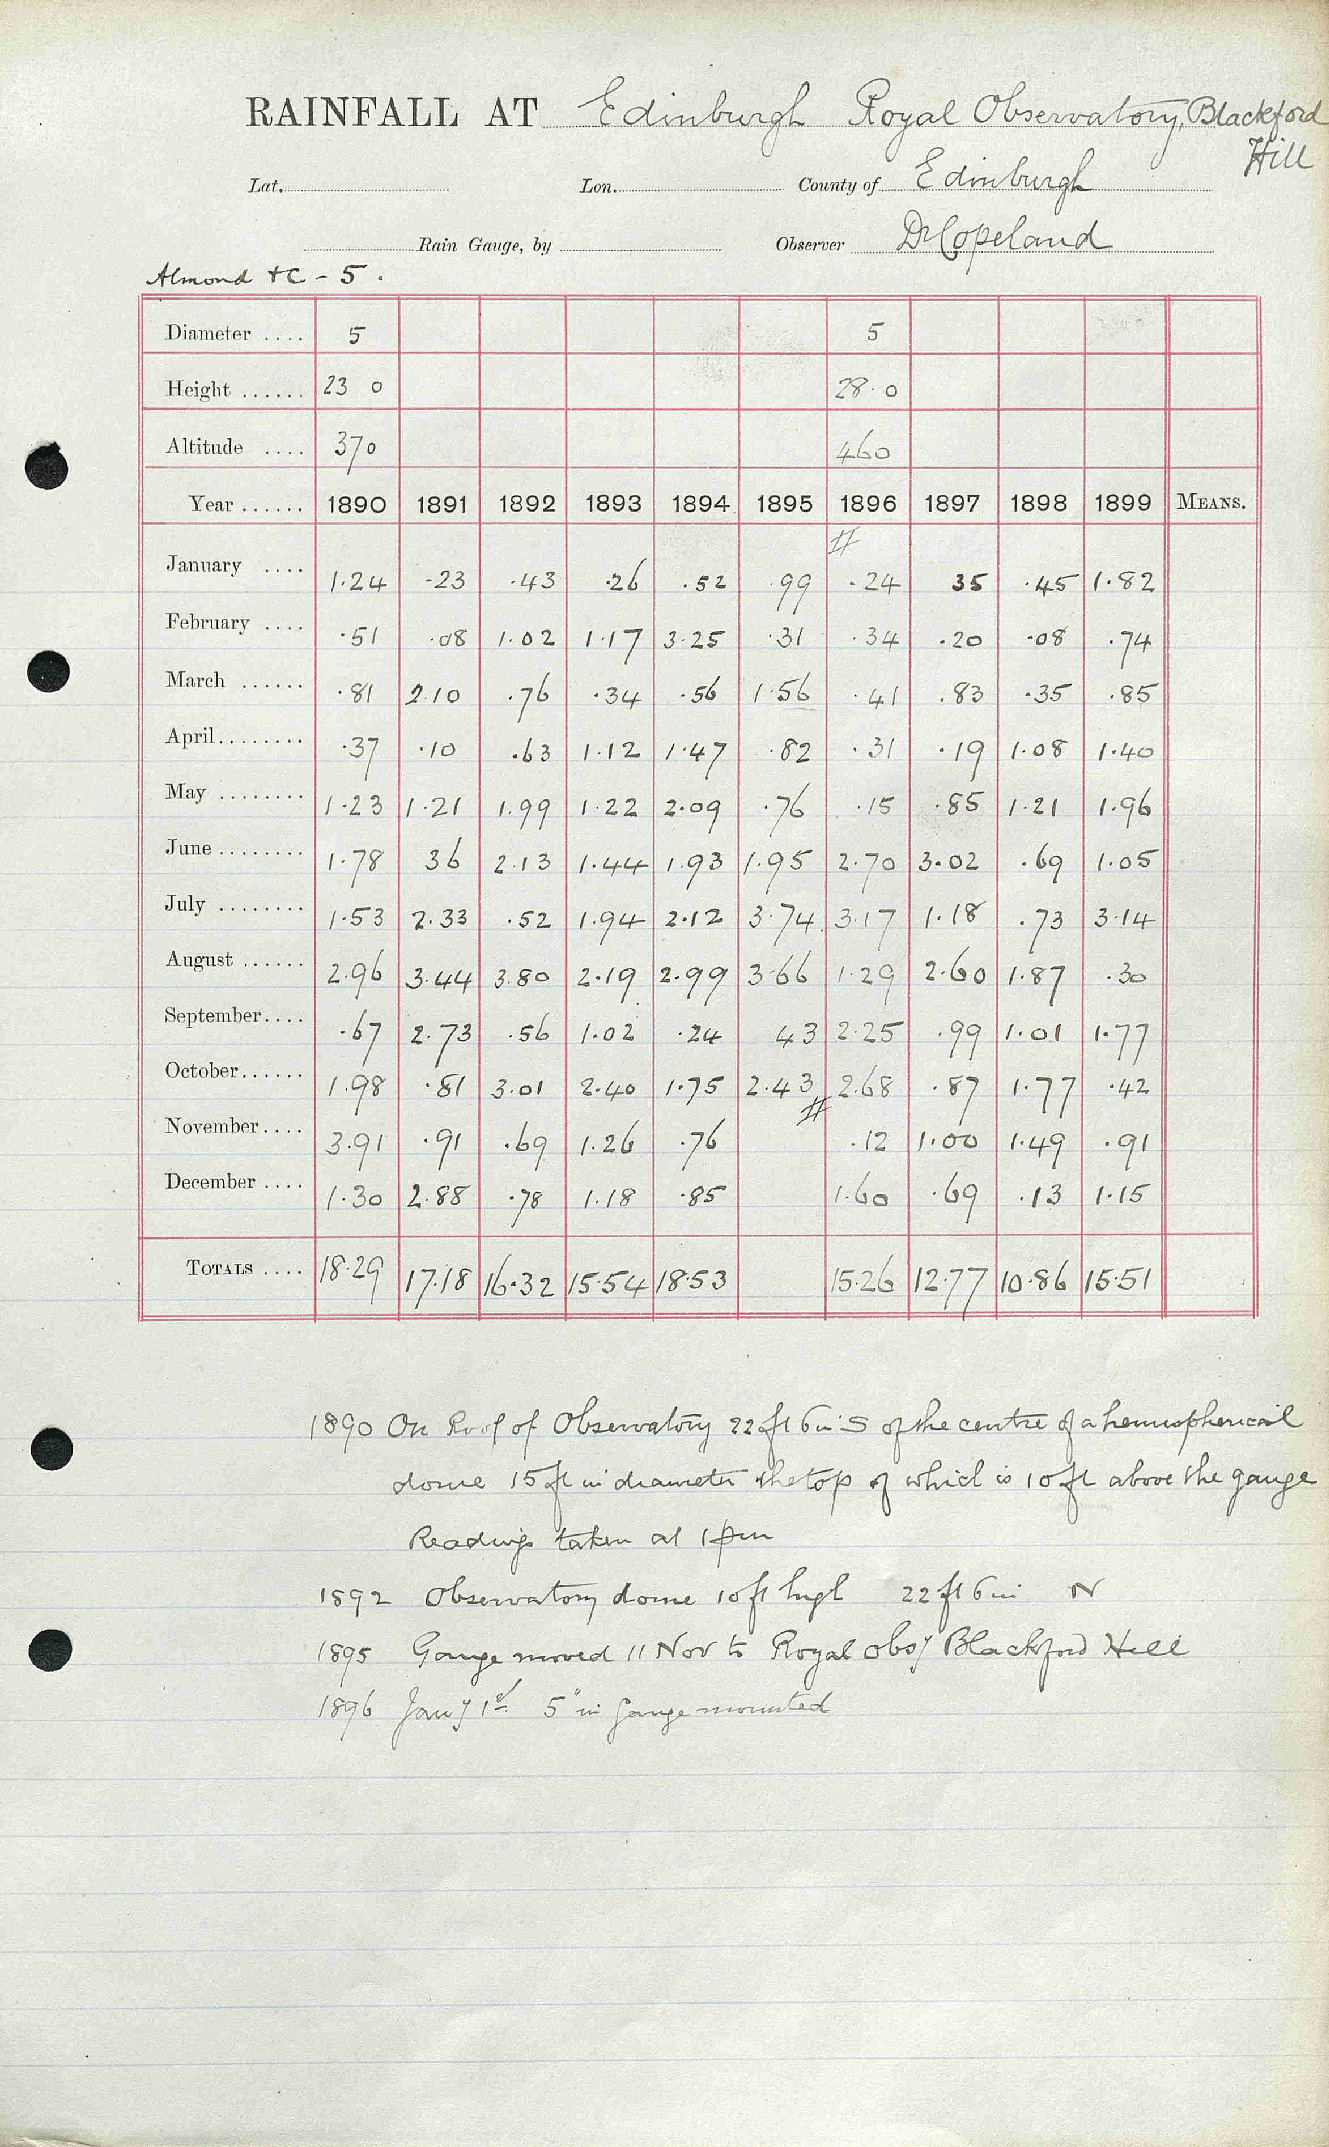 RAINFALL AT Edinburgh Royal Observatory, Blackford
Hill
Lat. Lon. County of Edinburgh
Rain Gauge, by Observer Dr Copeland
Almond &C - 5.
Diameter .... 5 5
Height ...... 23 0 28.0
Altitude .... 370 460
Year ...... 1890 1891 1892 1893 1894 1895 1896 1897 1898 1899 MEANS.
#
January .... 1.24 .23 .43 .26 .52 .99 .24 35 .45 1.82
February .... .51 .08 1.02 1.17 3.25 .31 .34 .20 .08 .74
March ...... .81 2.10 .76 .34 .56 1.56 .41 .83 .35 .85
April........ .37 .10 .63 1.12 1.47 .82 .31 .19 1.08 1.40
May ........ 1.23 1.21 1.99 1.22 2.09 .76 .15 .85 1.21 1.96
June........ 1.78 36 2.13 1.44 1.93 1.95 2.70 3.02 .69 1.05
July ........ 1.53 2.33 .52 1.94 2.12 3.74 3.17 1.18 .73 3.14
August ...... 2.96 3.44 3.80 2.19 2.99 3.66 1.29 2.60 1.87 .30
September.... .67 2.73 .56 1.02 .24 43 2.25 .99 1.01 1.77
October...... 1.98 .81 3.01 2.40 1.75 2.43 2.68 .87 1.77 .42
#
November.... 3.91 .91 .69 1.26 .76 .12 1.00 1.49 .91
December .... 1.30 2.88 .78 1.18 .85 1.60 .69 .13 1.15
TOTALS .... 18.29 17.18 16.32 15.54 18.53 15.26 12.77 10.86 15.51
1890 On Roof of Observatory 22 ft 6 in S of the centre of a hemispherical
dome 15 ft in diameter the top of which is 10 ft above the gauge
Readings taken at 1 pm
1892 Observatory dome 10 ft high 22 ft 6 in N
1895 Gauge moved 11 Nov to Royal Obsy Blackford Hill
1896 Jany 1st 5" in gauge mounted